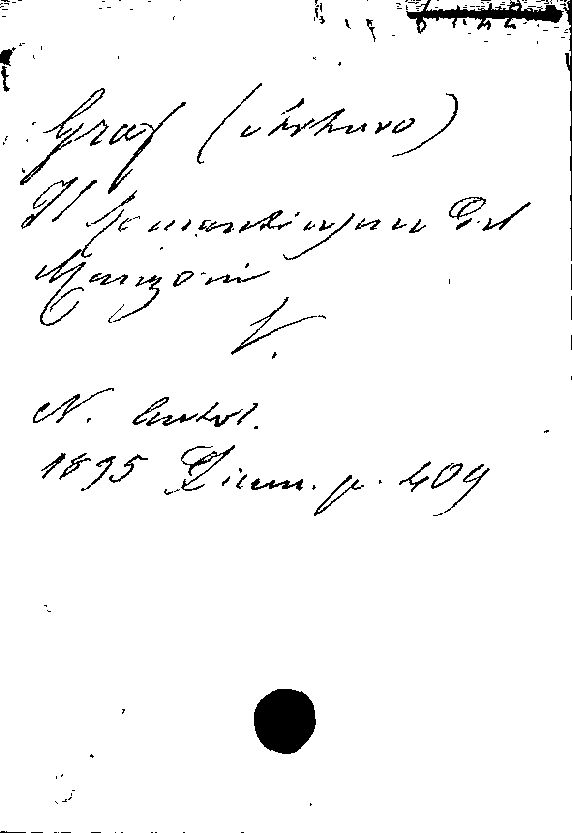 Graf (Arturo)
Il Romanticismo del
Manzoni
V.
N. Antol.
1895 Gium. p. 409